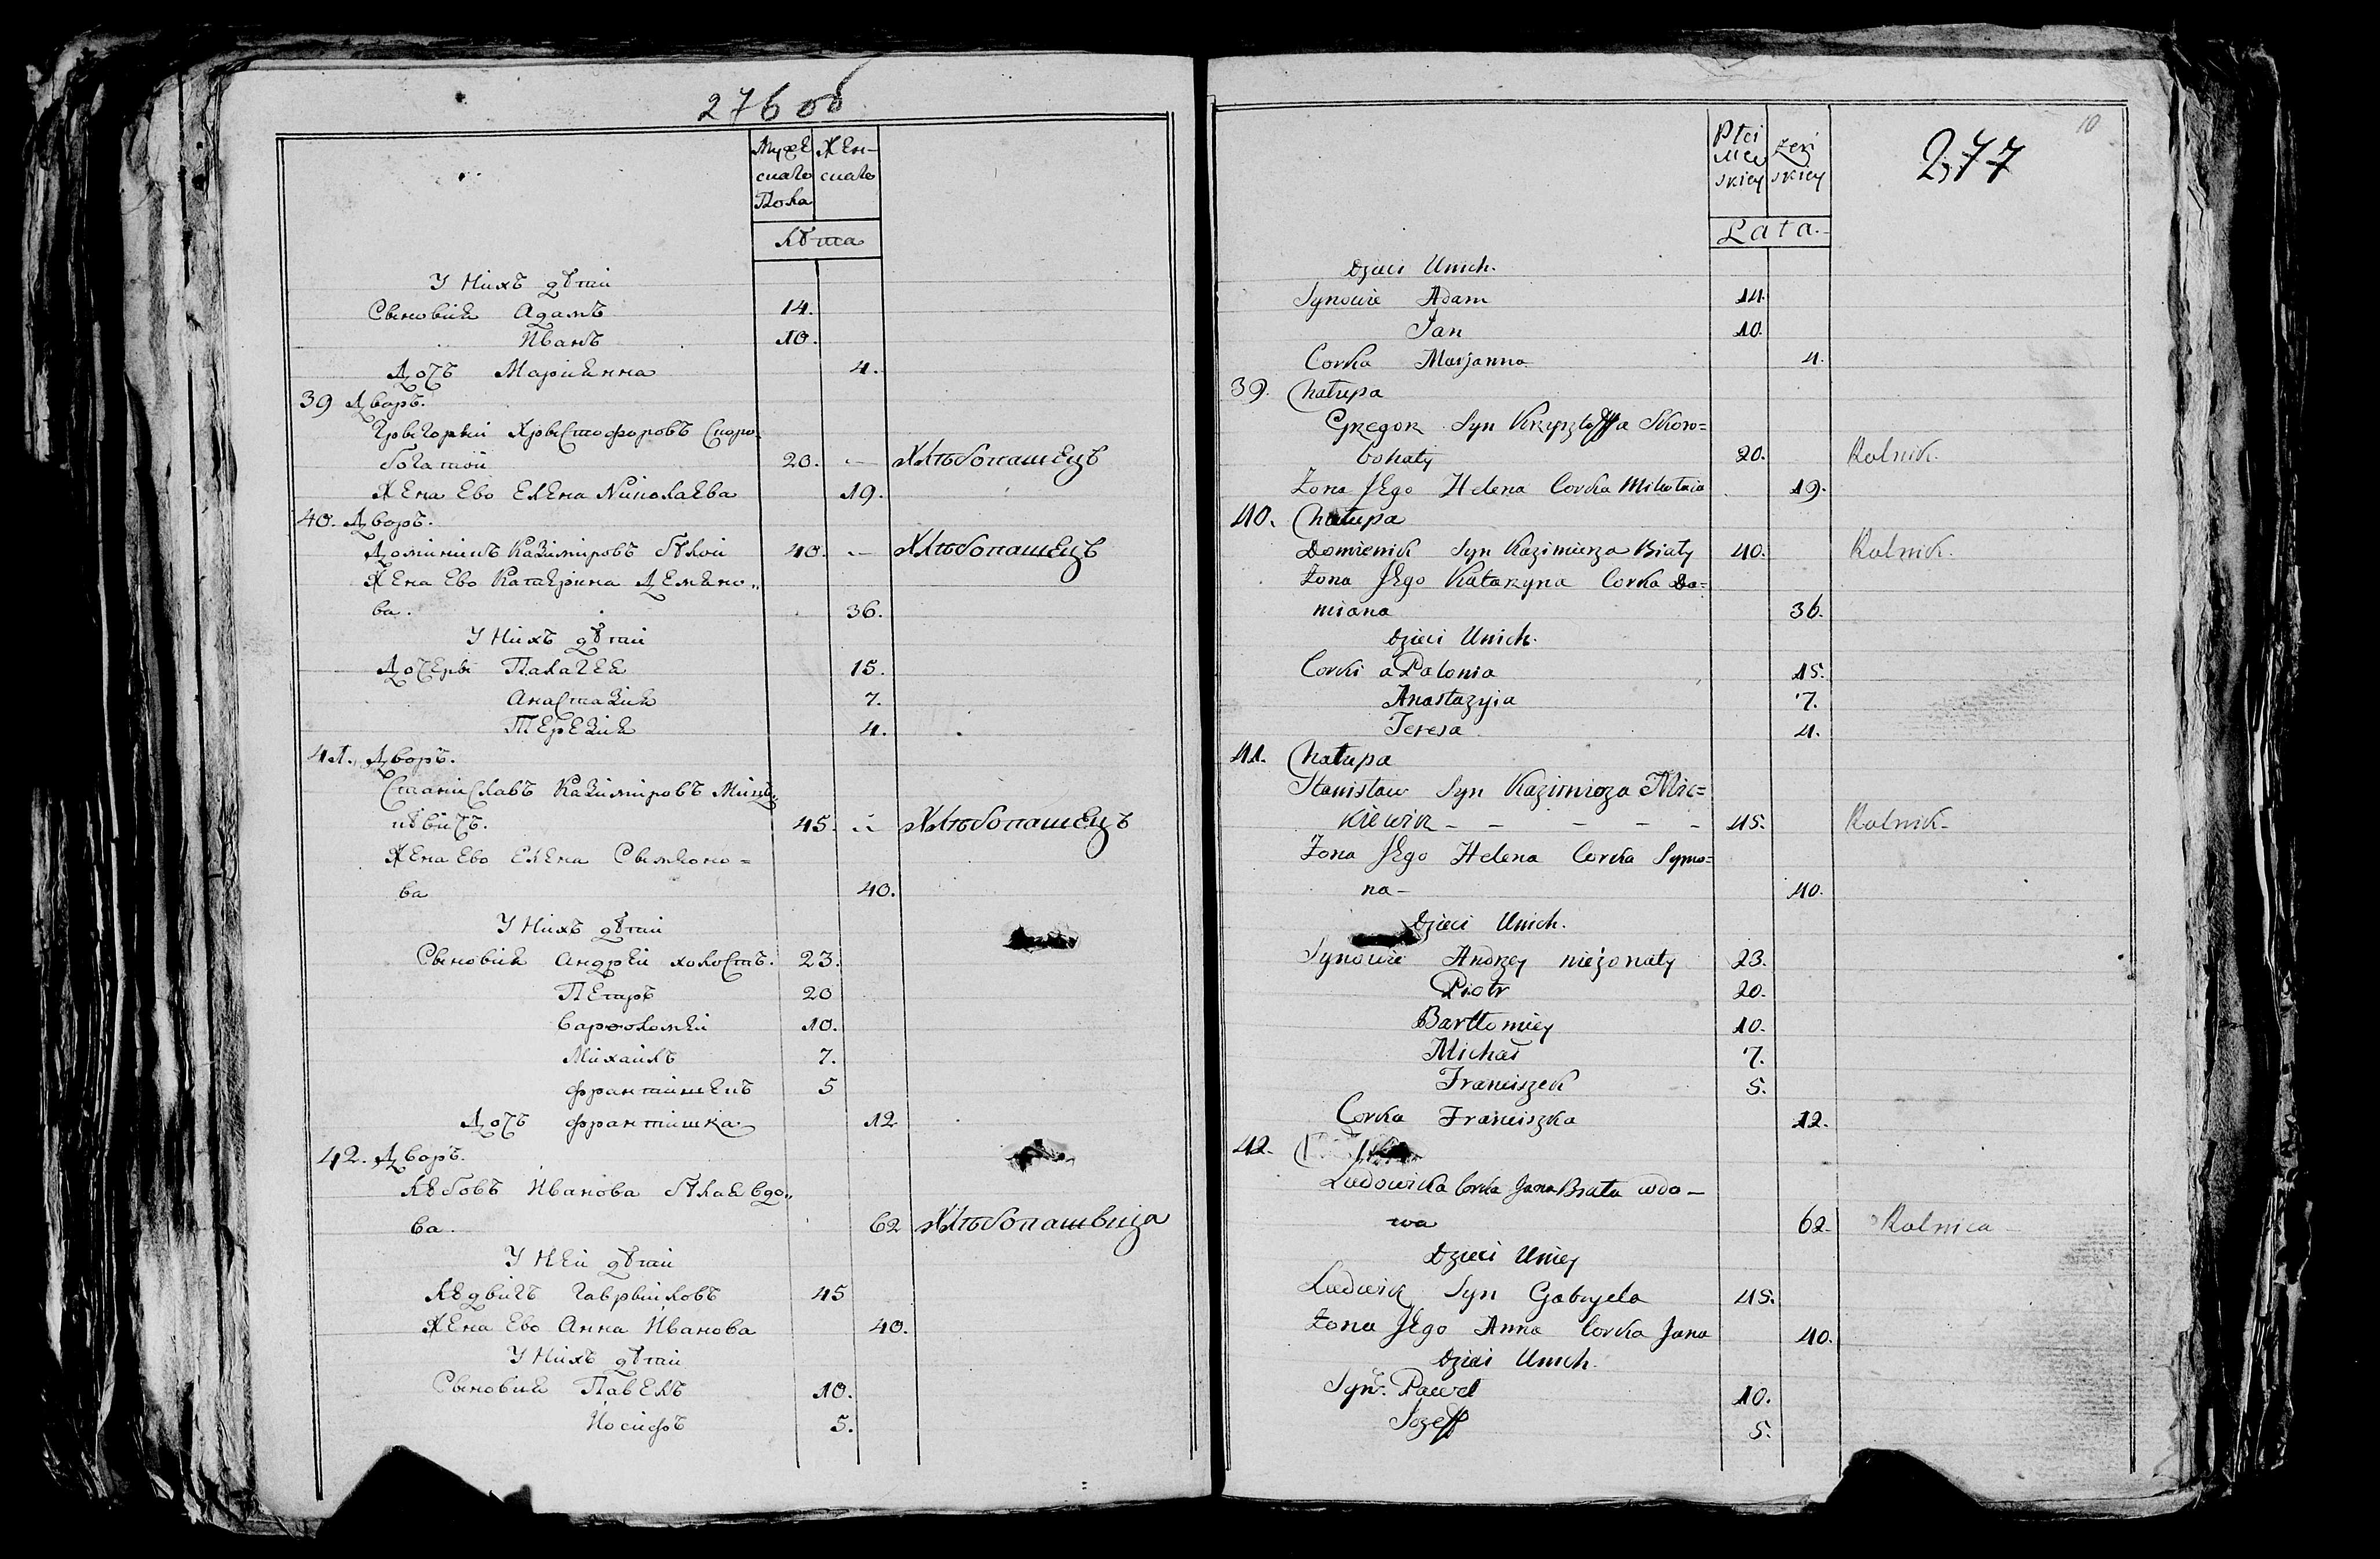 276 об
Муже Жен-
скаго скаго
Пола
лѣта
У Нихъ дѣти
Сыновия Адамъ 14.
Иванъ 10.
Дочъ Мариянна 4.
39 Дворъ.
Грыгорый Хрыстофоровъ Скоро
богатой 20. — Хлѣбопашецъ
Жена Ево Елена Николаева 19.
40. Дворъ.
Доминикъ Казимировъ Бялой 40. — Хлѣбопашецъ
Жена Ево Катярина Демяно„
ва. 36.
У Нихъ дѣти
Дочеры Палагея 15.
Анастазия 7.
Терезия 4.
41. Дворъ.
Станиславъ Казимировъ Миц„
кѣвичъ. 45. — Хлѣбопашецъ
Жена Ево Елена Сымоно=
ва 40.
У Нихъ дѣти
Сыновия Андрей холостъ. 23.
Петръ 20
Варѳоломей 10.
Михаилъ 7.
Франтишекъ 5
Дочъ Франтишка 12
42. Дворъ.
Любовъ Иванова Бялая вдо„
ва. 62 Хлѣбопашвица
У Ней дѣти
Людвигъ Гаврыиловъ 45
Жена Ево Анна Иванова 40.
У Нихъ дѣти
Сыновия Павелъ 10.
Иосифъ 5.
10
277
Płci żeń
męz
skiey skiey
Lata.
Dzieci Unich.
Synowie Adam 14.
Jan 10.
Corka Marjanna 4.
39. Chałupa
Grzegorz Syn Krzysztoffa Skoro=
bohaty 20. Rolnik.
Zona Jego Helena Corka Mikołaia 19.
40. Chałupa
Domienik Syn Kazimierza Biały 40. Rolnik.
Zona Jego Katarzyna Corka Da=
miana 36.
Dzieci Unich.
Corki aPalonia 15.
Anastazyia 7.
Teresa 4.
41. Chałupa
Stanisław Syn Kazimierza Mic=
kiewicz - - - - - 45. Rolnik-
Zona Jego Helena Corka Symo=
na- 40.
Dzieci Unich.
Synowie Andrzey nieżonaty 23.
Piotr 20.
Bartłomiey 10.
Michał 7.
Franciszek 5.
Corka Franciszka 12.
42.
Ludowika Corka Jana Biała wdo-
wa 62. Rolnica -
Dzieci Uniey
Ludwik Syn Gabryela 45.
Zona Jego Anna Corka Jana 40.
Dzieci Unich.
Syn: Paweł 10.
Jozeff 5.